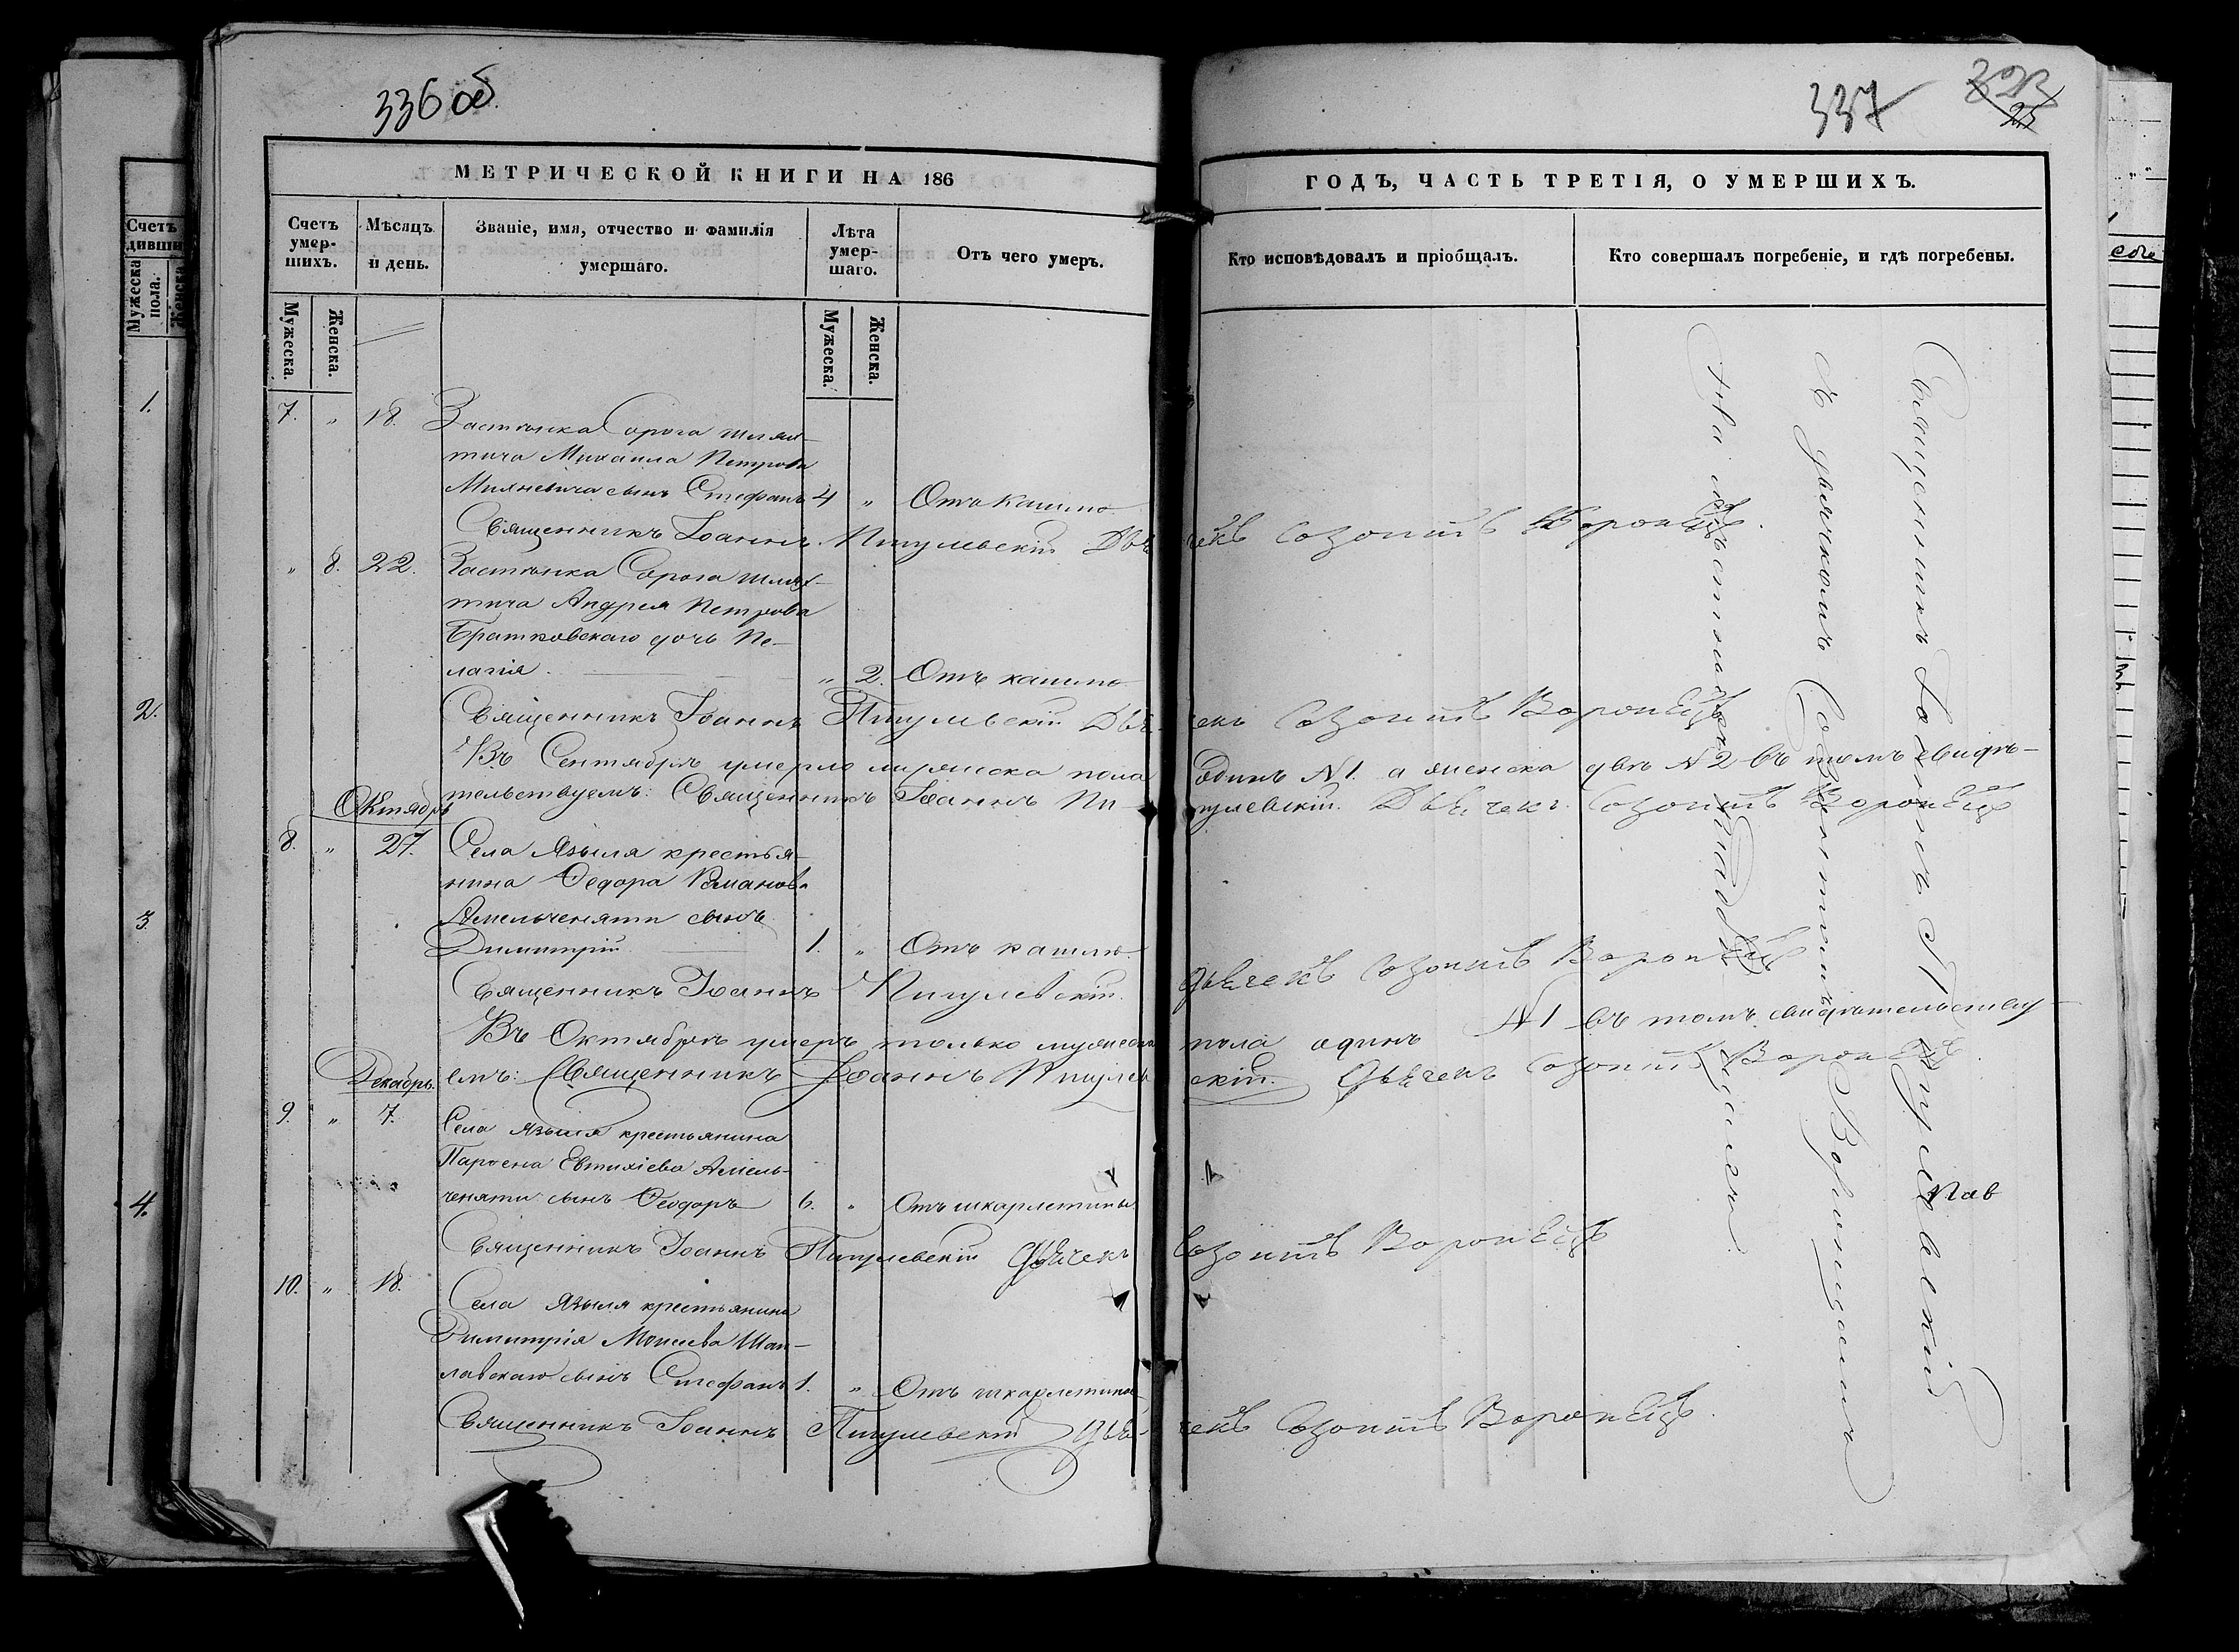 336 об.
337
МЕТРИЧЕСКОЙ КНИГИ НА 186
ГОДЪ, ЧАСТЬ ТРЕТІЯ, О УМЕРШИХЪ.
Счетъ умер-
шихъ.
Мѣсяцъ
и день.
Званіе, имя, отчество и фамилія
умершаго.
Лѣта
умер-
шаго.
Отъ чего умеръ.
Кто исповѣдовалъ и пріобщалъ.
Кто совершалъ погребеніе, и гдѣ погребены.
Мужеска.
Женска.
Мужеска.
Женска.
7. " 18. Застѣнка Сорога шлях-
тича Михаила Петрова
сынъ Стефанъ 4 " Отъ кашлю
Священникъ Іоаннъ Пигулевскій Дьячекъ Созонтъ Воронецъ.
" 8. 22. Застѣнка Сорога шлях-
тича Андрея Петрова
Братковскаго дочь Пе-
лагія. " 2. Отъ кашлю
Священникъ Іоаннъ Пигулевскій Дьячекъ Созонтъ Воронецъ
Въ Сентябрѣ умерло мужеска пола одинъ N 1. а женска двѣ N 2 въ томъ свидѣ-
тельствуемъ: Священникъ Іоаннъ Пигулевскій. Дьячекъ Созонтъ Воронецъ
Октябрь
8. " 27. Села Языля крестья-
нина Ѳедора Романова
Амельченяти сынъ
Димитрій 1. " Отъ кашлю.
Священникъ Іоаннъ Пигулевскій. Дьячекъ Созонтъ Воронецъ
Въ Октябрѣ умеръ только мужеска пола одинъ N 1 въ томъ свидѣтельству-
емъ: Священникъ Іоаннъ Пигулевскій. Дьячекъ Созонтъ Воронецъ.
Декабрь.
9. " 7. Села Языля крестьянина
Парѳена Евтихіева Амель-
ченяти сынъ Ѳеодоръ 6. " Отъ шкарлетины
Священникъ Іоаннъ Пигулевскій Дьячекъ Созонтъ Воронецъ
10. " 18. Села Языля крестьянина
Димитрія Моисеева Шап-
лавскаго сынъ Стефанъ 1. " Отъ шкарлетины
Священникъ Іоаннъ Пигулевскій Дьячекъ Созонтъ Воронецъ.
Священникъ Іоаннъ Пигулевскій
съ дьячкомъ Созонтомъ Воронцомъ
при мѣстномъ
Счетъ
Мужеска
пола.
Женска
1.
2.
3.
4.